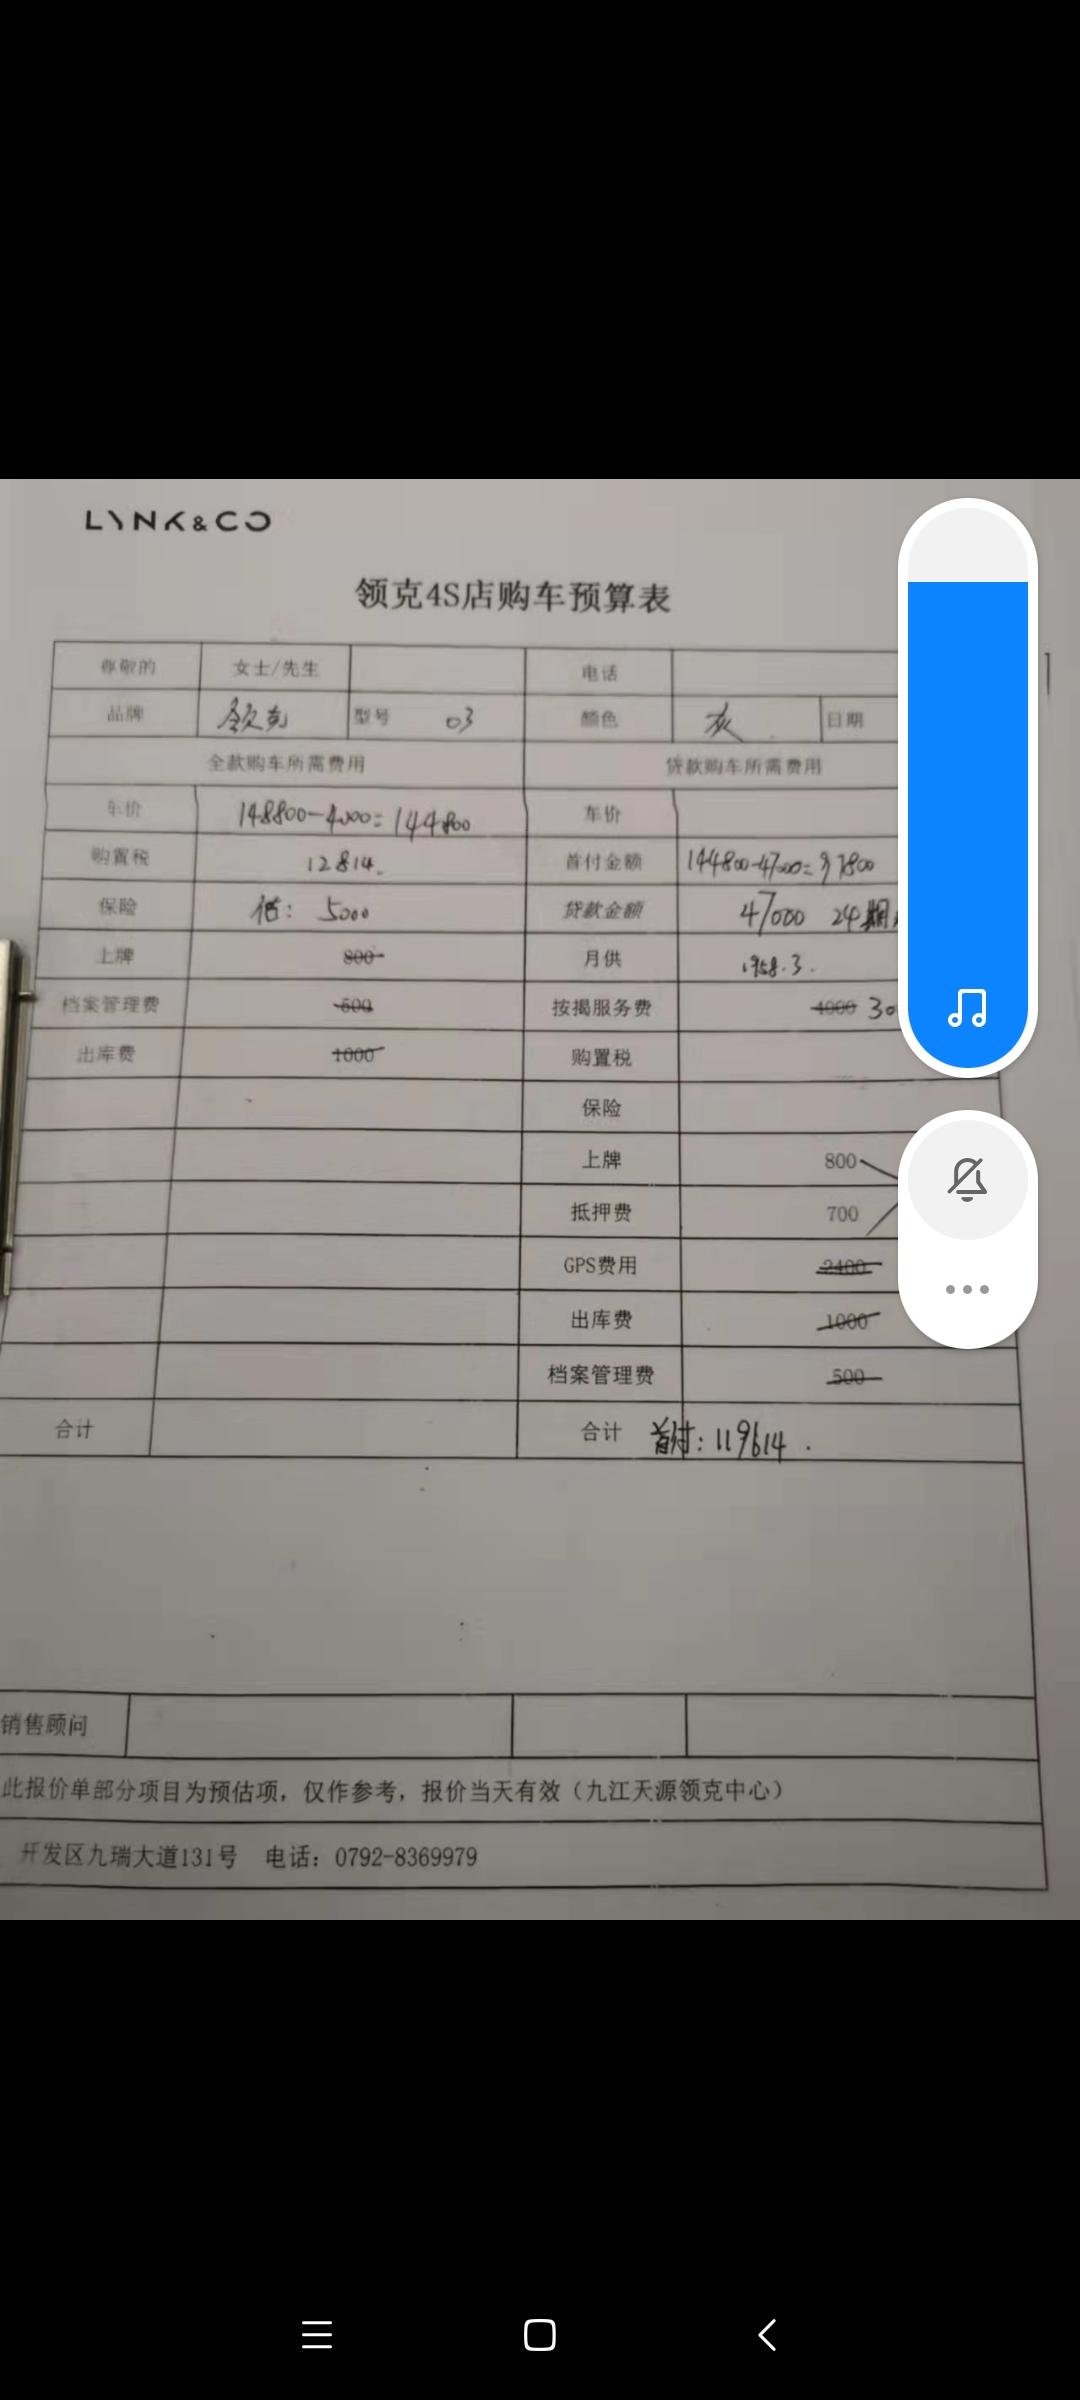 LYNK&CO
领克4S店购车预算表
尊敬的 女士/先生 电话
品牌 领克 型号 03 颜色 灰 日期
全款购车所需费用 贷款购车所需费用
车价 148800-4000=144800 车价
购置税 12814. 首付金额 144800-47000=97800
保险 估: 5000 贷款金额 47000 24期
上牌 800 月供 1958.3.
档案管理费 500 按揭服务费 4000 30
出库费 1000 购置税
保险
上牌 800
抵押费 700
GPS费用 2400
出库费 1000
档案管理费 500
合计 合计 首付: 119614.
销售顾问
此报价单部分项目为预估项，仅作参考，报价当天有效（九江天源领克中心）
开发区九瑞大道131号 电话：0792-8369979